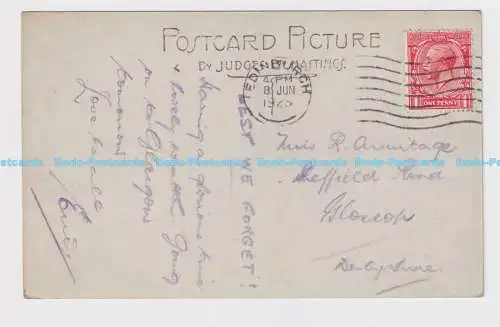 POSTCARD PICTURE
BY JUDGES HASTINGS
EDINBURGH
4 PM
8 JUN
192
1 ONE PENNY 1
LEST WE FORGET!
Having a glorious time
& lovely weather. Going
on to Glasgow
tomorrow
Love to all
Miss R. Armitage
Sheffield Road
Glossop
Derbyshire
Bado-Postcards Bado-Postcards Bado-Postcards Bado-Postcards Bado-Postcards